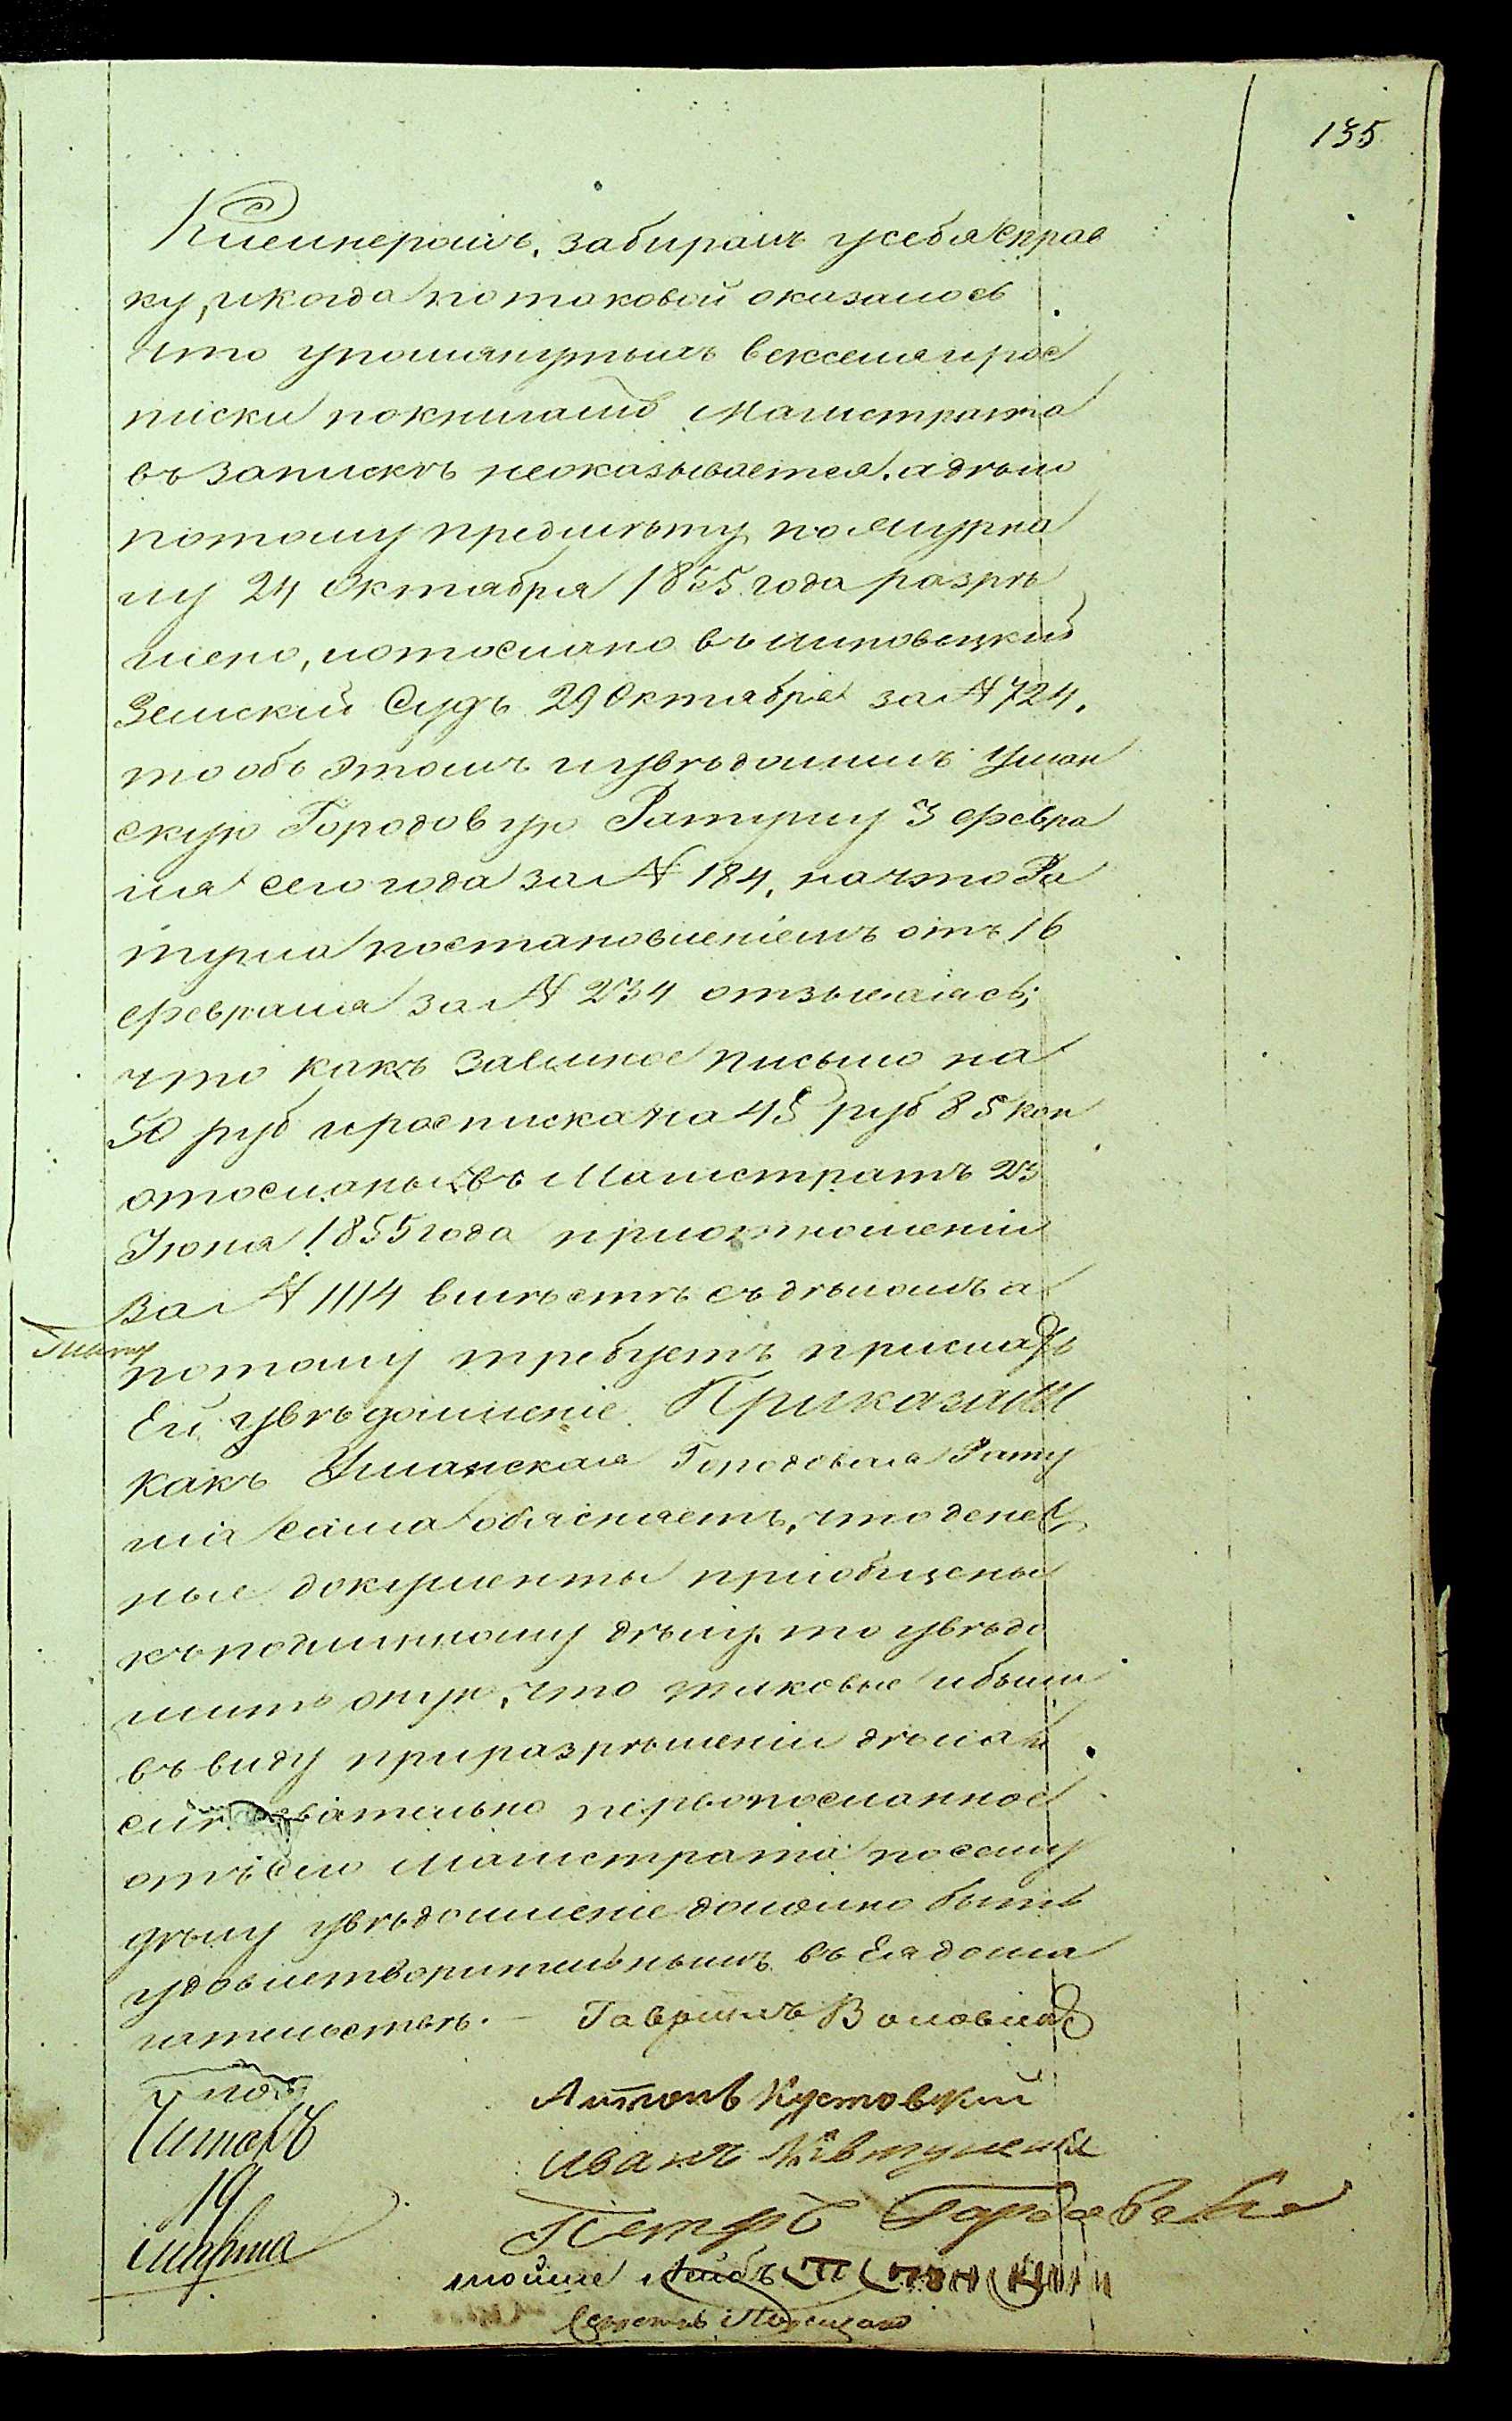 135
забиралъ усебя справ
ку, и когда по таковой оказалось
что упомянутыхъ векселя и рос
писки по книгамъ Магистрата
въ запискѣ неоказывается, а дѣло
потому предмѣту по журна
лу 24 Октября 1855 года разрѣ
шено, и отослано въ Липовецкій
Земскій Судъ 29 Октября за № 724,
то объ этомъ и увѣдомилъ Уман
скую Городовую Ратушу 3 февра
ля сего года за № 184, на что Ра
туша постановленіемъ отъ 16
февраля за № 234 отзываясь,
что какъ заемное письмо на
50 руб и росписка на 45 руб 85 коп
отосланы въ Магистратъ 23
Іюня 1855 года при отношеніи
за № 1114 вмѣстѣ съ дѣломъ а
потому требуетъ прислать
Ей увѣдомленіе. Приказали
какъ Уманская Городовая Рату
ша сама обясняетъ, что денеж
ные документы пріобщены
къ подлинному дѣлу, то увѣдо
мить оную, что таковые и были
въ виду при разрѣшеніи дѣла и
слѣдовательно первопосланное
отъ сего Магистрата по сему
дѣлу увѣдомленіе должно быть
удовлетворительнымъ въ Ея дома
гательствѣ. — Гаврилъ
Антонъ Кустовскій
Иванъ
Петръ
мойше Лейбъ
19